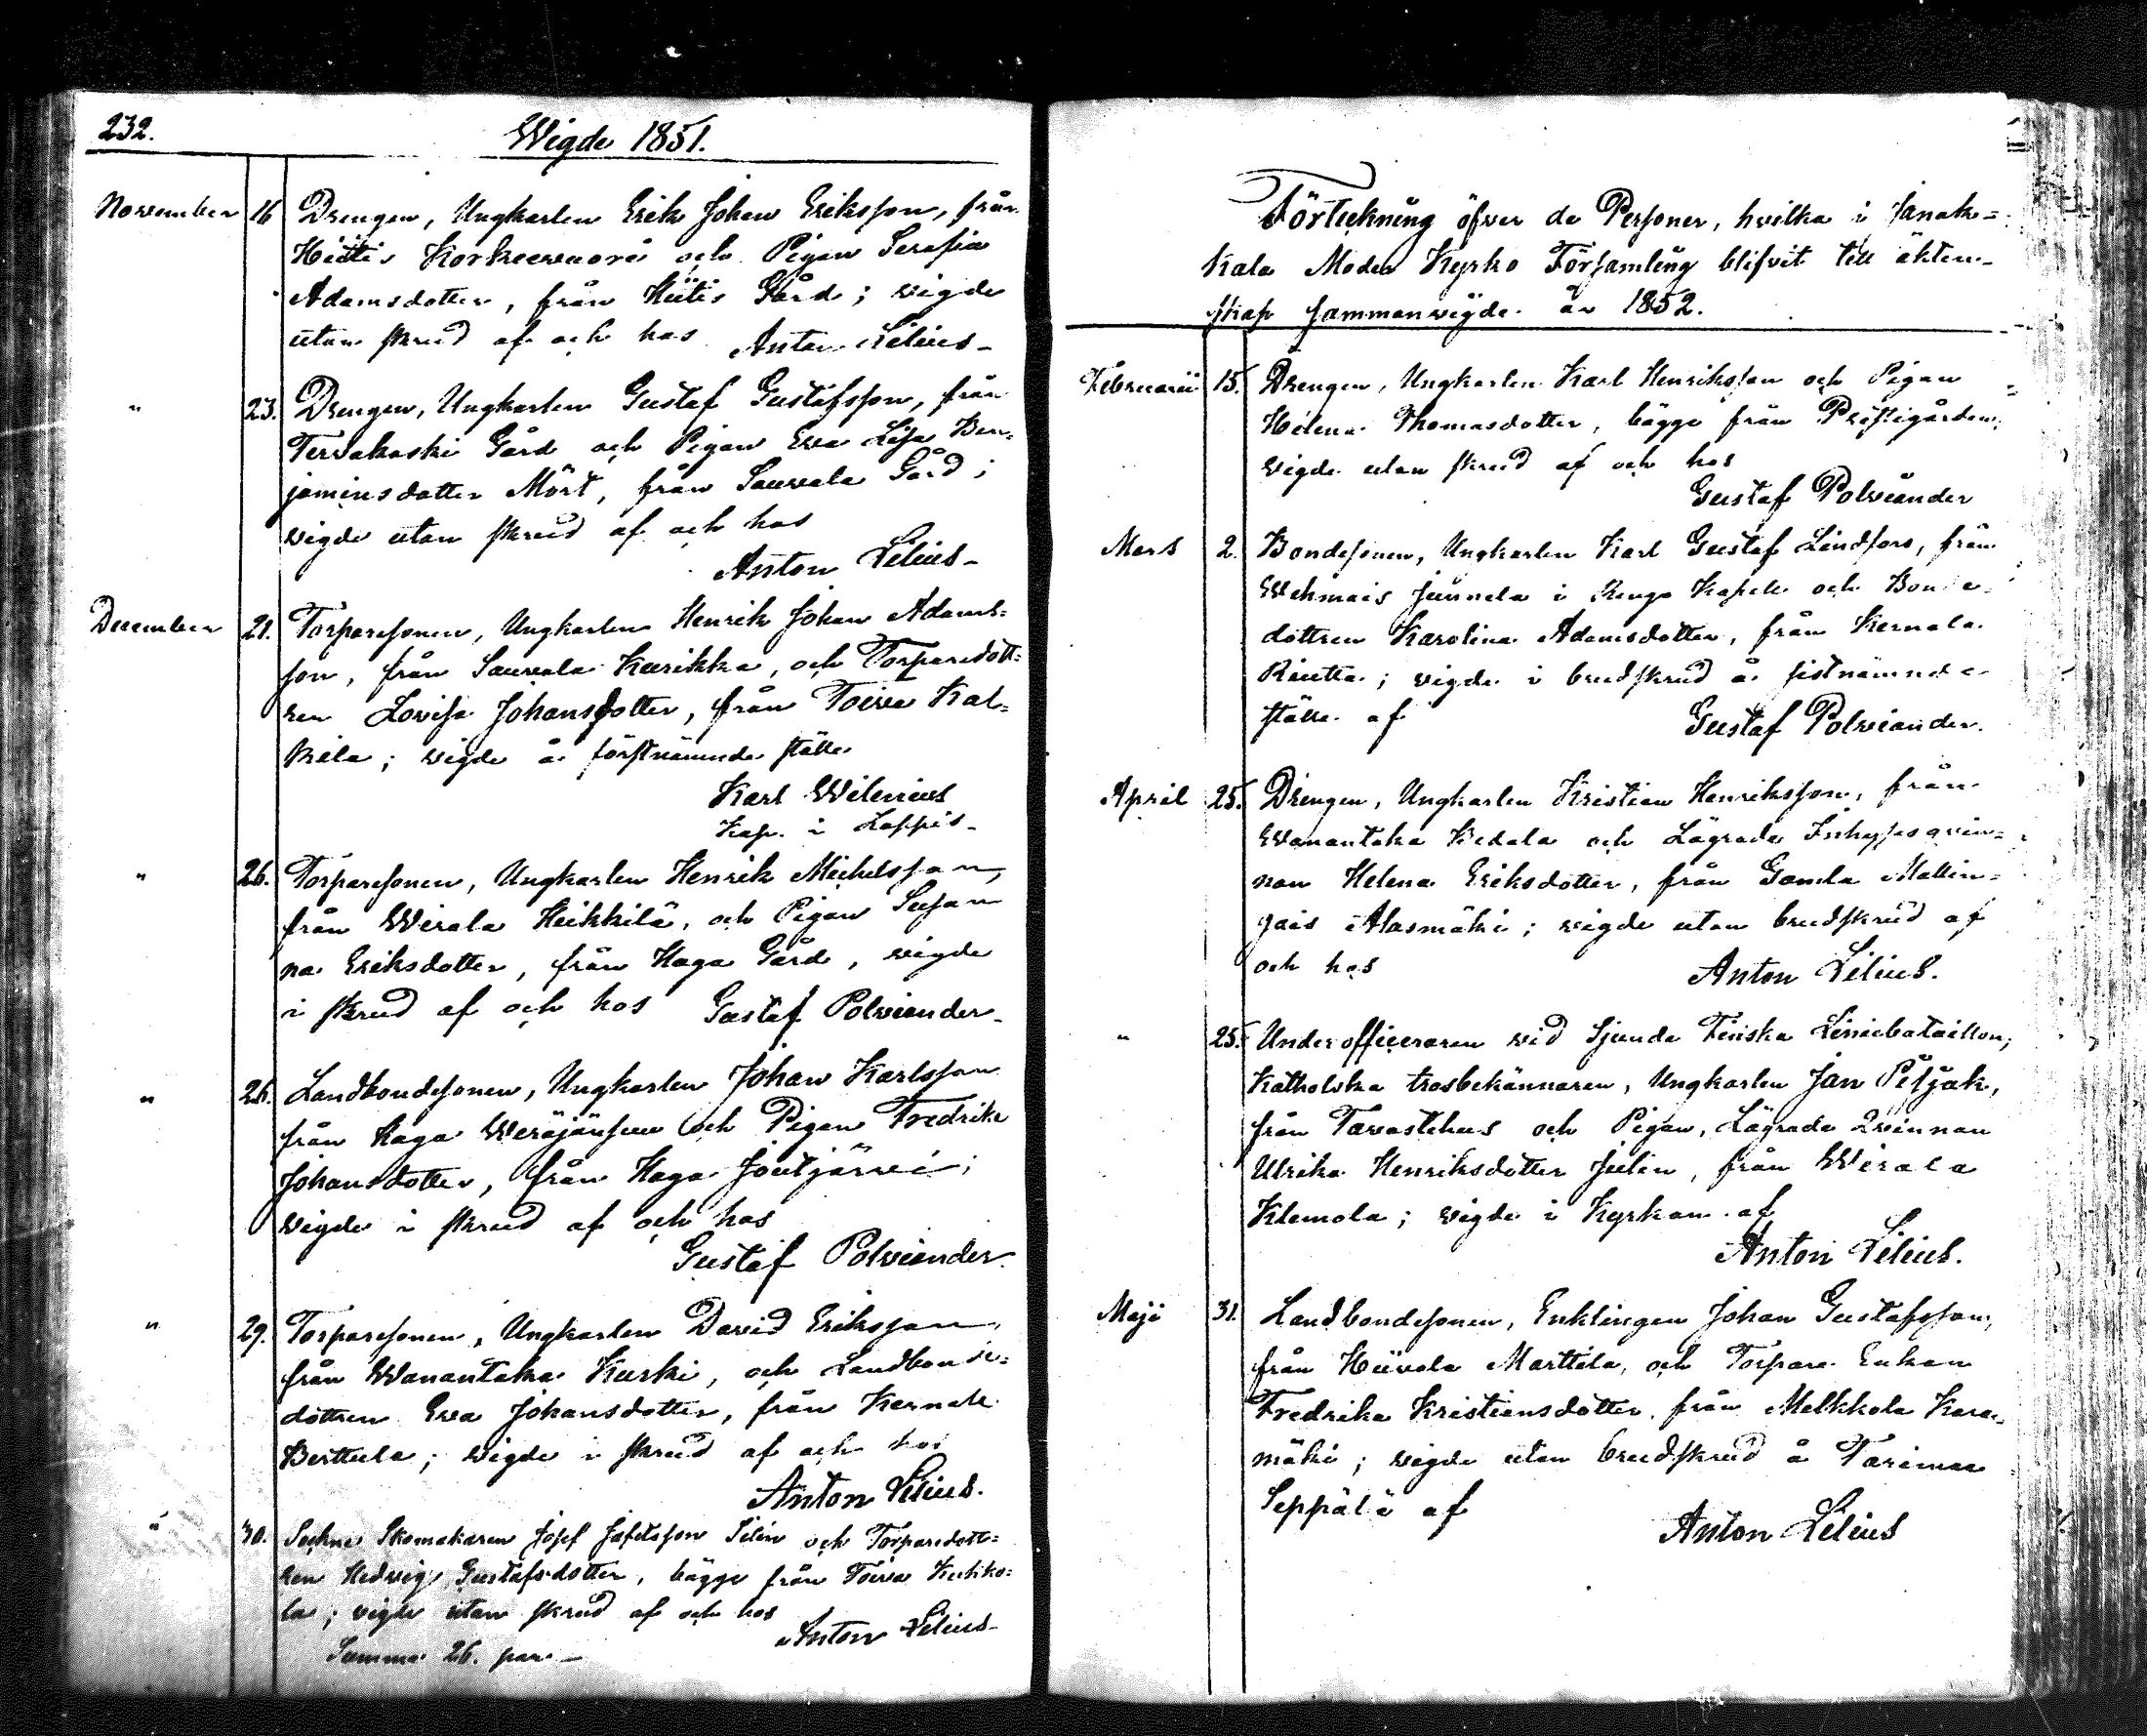 232.
Wigde 1851.
November 16 Drengen, Ungkarlen Erik Johan Eriksson, från
Hiitis Korkeevuori och Pigan Serafia
Adamsdotter, från Hiitis Gård; vigde
utan skrud af och hos Anton Lilius
" 23. Drengen, Ungkarlen Gustaf Gustafsson, från
Tervakoski Gård och Pigan Eva Lisa Ben=
jaminsdotter Mört, från Sauvala Gård;
vigde utan skrud af och hos
Anton Lilius
December 21. Torparesonen, Ungkarlen Henrik Johan Adams=
son, från Sauvala Kurikka, och Torparedott=
ren Lovisa Johansdotter, från Toivo
vigde å förstnämnde ställe
Karl Wilenius
Kap. i Loppis
" 26. Torparesonen, Ungkarlen Henrik Michelsson,
från Wirala Heikkilä, och Pigan Susan
na Eriksdotter, från Haga Gård, vigde
i skrud af och hos Gustaf Polviander
" 26. Landbondesonen, Ungkarlen Johan Karlsson
från Haga och Pigan Fredrika
Johansdotter, från Haga Joutjärvi;
vigde i skrud af och hos
Gustaf Polviander
" 29. Torparesonen, Ungkarlen David Eriksson,
från Wanantaka Kurki, och Landbonde=
dottren Eva Johansdotter, från Kernala
Berttula; vigde i skrud af och hos
Anton Lilius.
" 30. Sockne Skomakaren Josef Jafetsson Silin och Torparedott=
ren Hedvig Gustafsdotter, bägge från Toivo
la; vigde utan skrud af och hos
Anton Lilius
Summa 26. par.
Förteckning öfver de Personer, hvilka i Janak=
kala Moder Kyrko Församling blifvit till äkten-
skap sammanvigde år 1852.
Februarii 15. Drengen, Ungkarlen Karl Henriksson och Pigan
Helena Thomasdotter, bägge från Prestigården;
vigde utan skrud af och hos
Gustaf Polviander
Mars 2. Bondesonen, Ungkarlen Karl Gustaf Lindfors, från
Wehmais Junnila i Rengo Kapell och Bonde-
dottren Karolina Adamsdotter, från Kernala
Riutta; vigde i brudskrud å sistnämnde
ställe af Gustaf Polviander.
April 25. Drengen, Ungkarlen Kristian Henriksson, från
Wanantaka Kedola och Lägrade Inhyses qvin=
nan Helena Eriksdotter, från Gamla Mallin=
gais Alasmäki; vigde utan brudskrud af
och hos Anton Lilius.
" 25. Underofficeraren vid Sjunde Finska Liniebataillon,
Katholska trosbekännaren, Ungkarlen Jan Pessjak,
från Tavastehus och Pigan, Lägrade Qvinnan
Ulrika Henriksdotter Julin, från Wirala
Klemola; vigde i Kyrkan af
Anton Lilius.
Maji 31. Landbondesonen, Enklingen Johan Gustafsson,
från Hiivola Marttila, och Torpare Enkan
Fredrika Kristiansdotter från Melkkola Kara=
mäki; vigde utan brudskrud å Tarinmaa
Seppälä af Anton Lilius